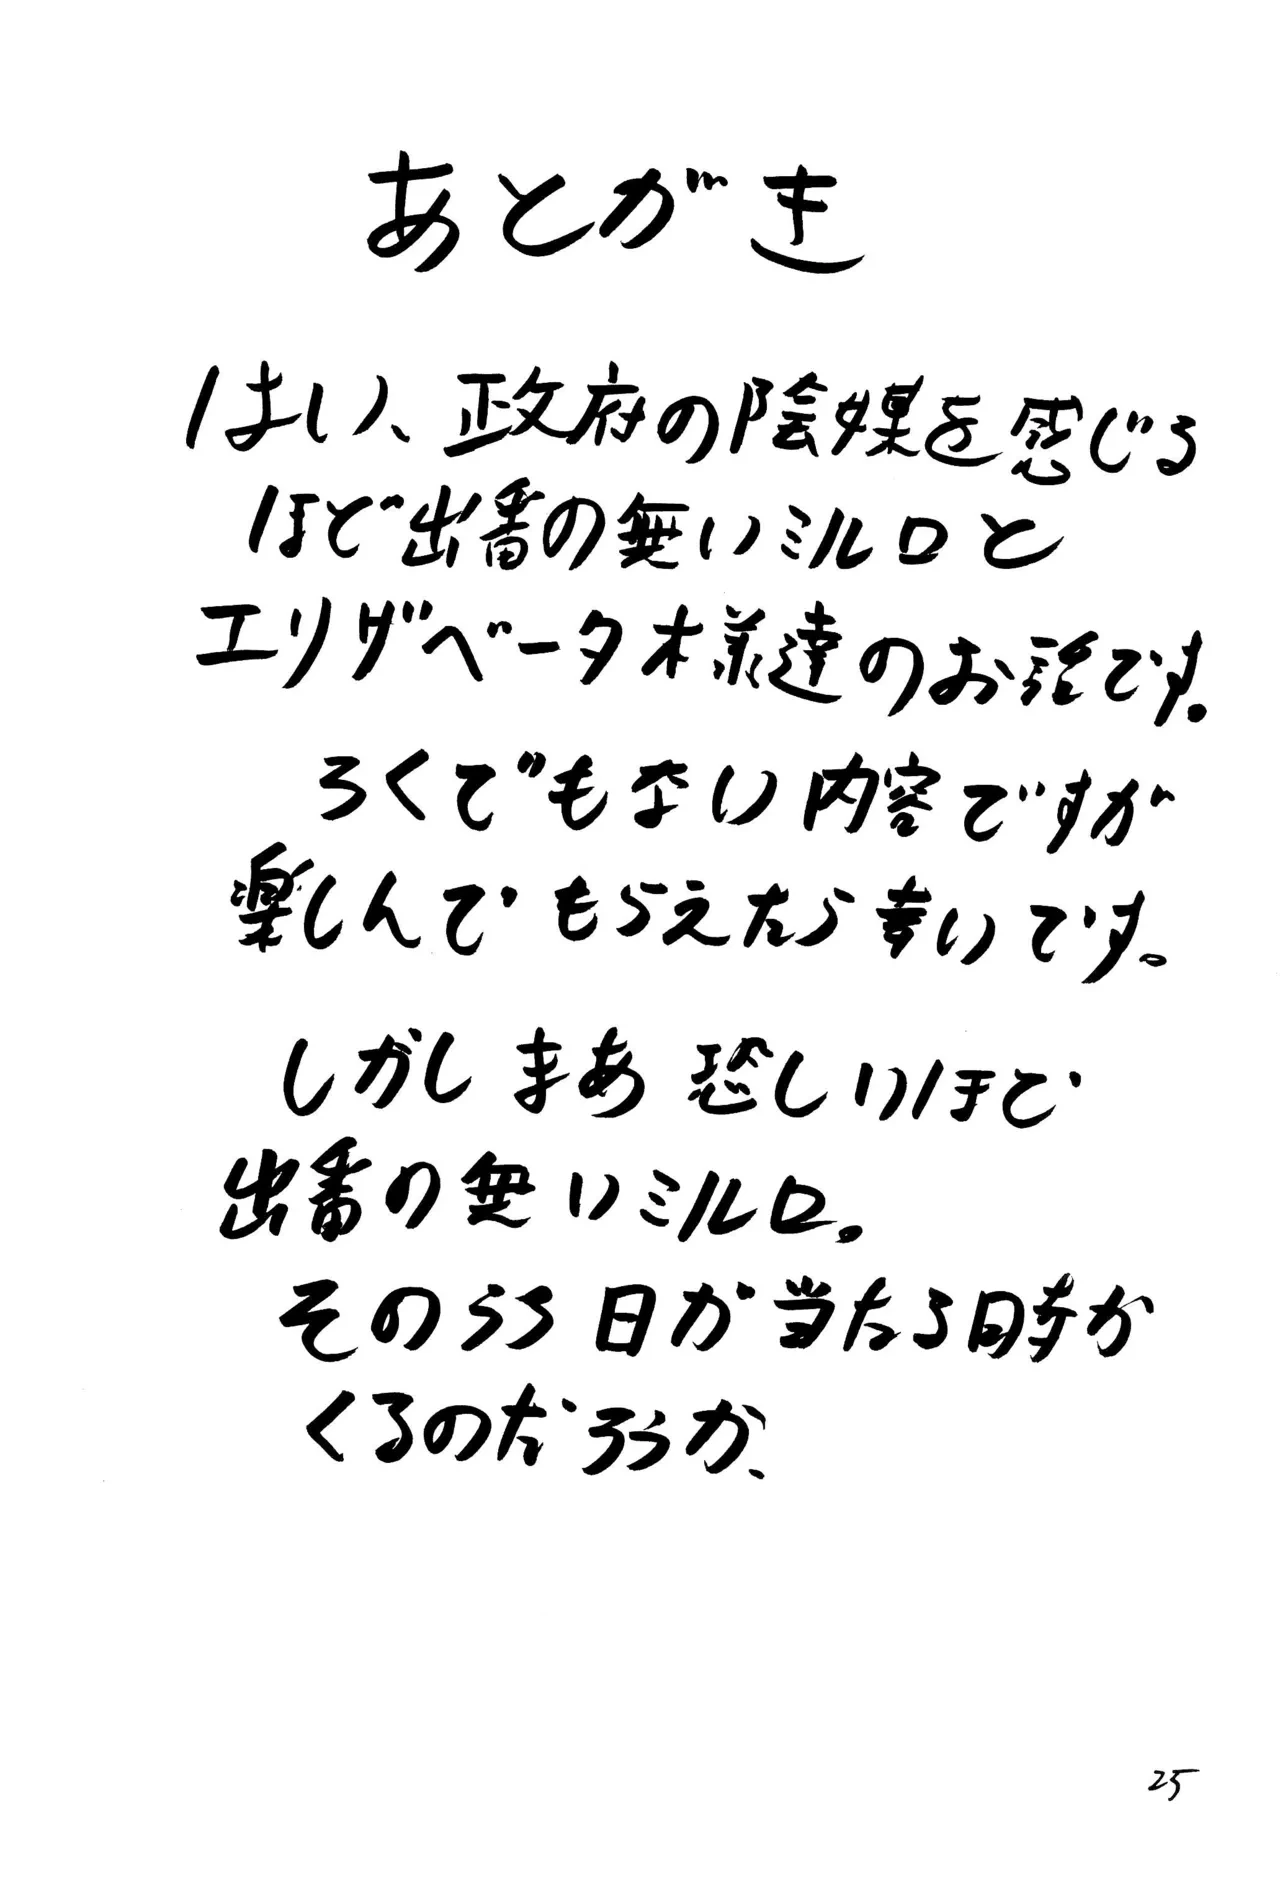 あとがき
はい、政府の陰媒を感じる
ほど出番の無いミルロと
エリザベータ様達のお話です。
ろくでもない内容ですが
楽しんでもらえたら幸いです。
しかしまあ恐しいほど
出番の無いミルロ。
そのうち日が当たる時が
くるのだろうか、
25